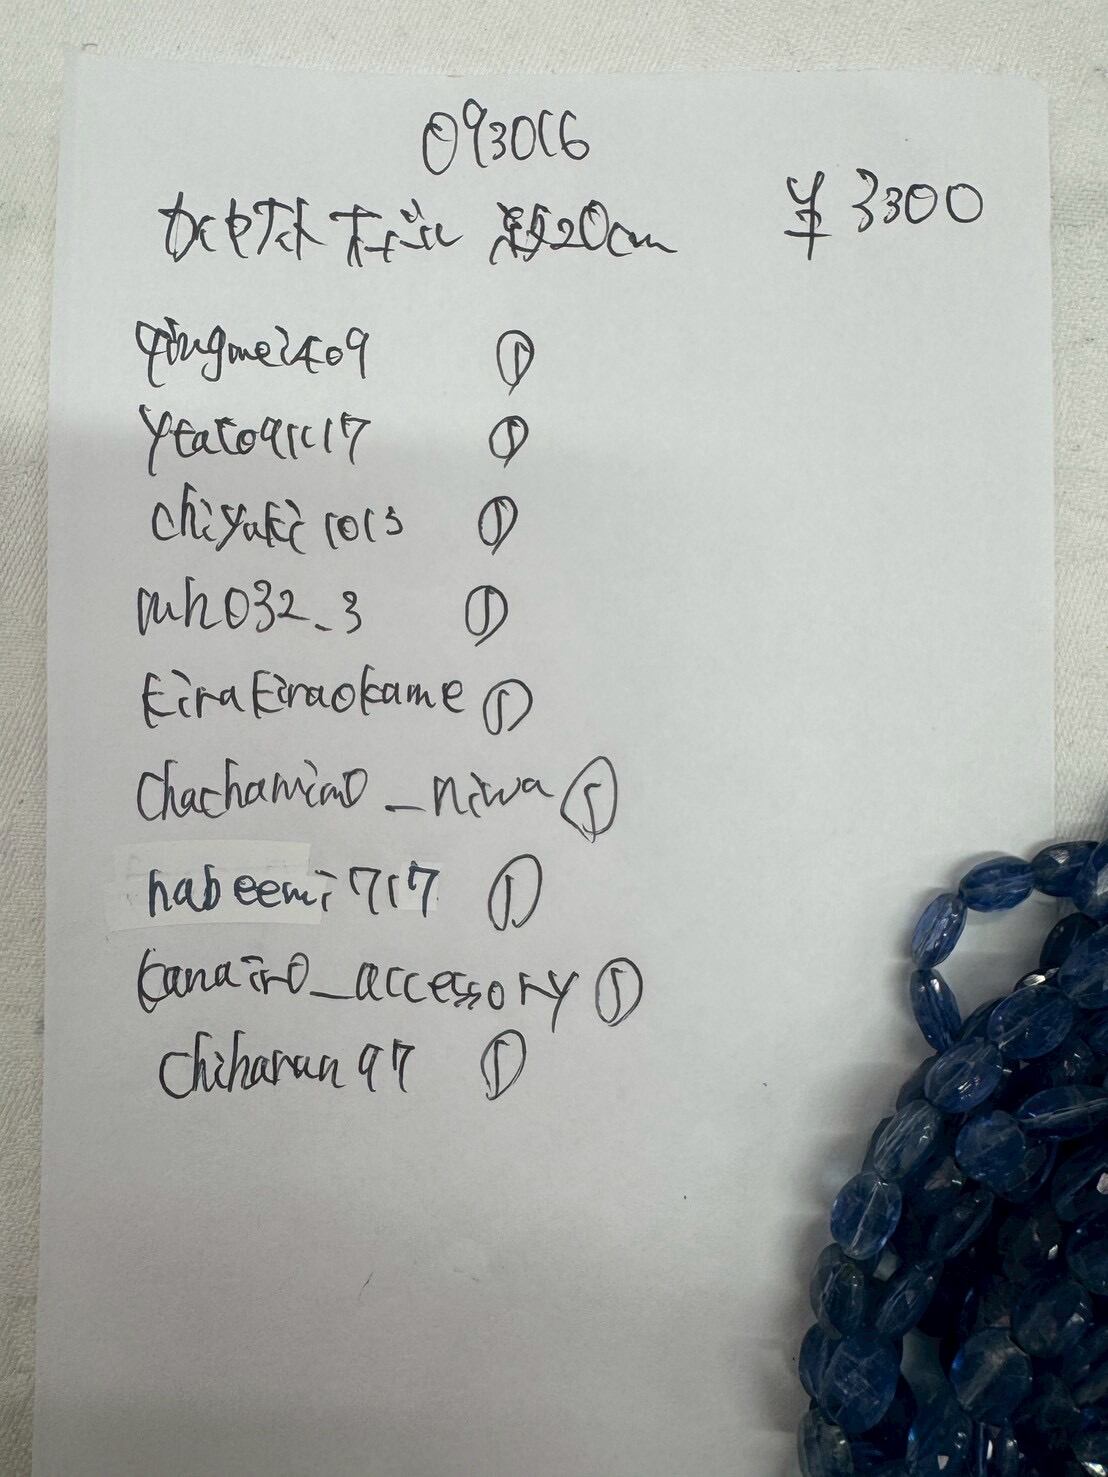 093016
約20cm ¥3300
qingmei409 ①
ytato91117 ①
chiyuki1013 ①
mh032_3 ①
kirakiraokame ①
chachamimo_niwa ①
nabeemi717 ①
kanairo_accessory ①
chiharun97 ①